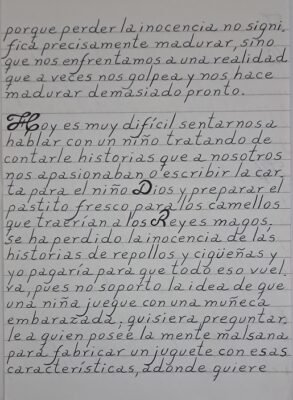 porque perder la inocencia no signi,
fica precisamente madurar, sino
que nos enfrentamos a una realidad
que a veces nos golpea y nos hace
madurar demasiado pronto.
Hoy es muy difícil sentarnos a
hablar con un niño tratando de
contarle historias que a nosotros
nos apasionaban o escribir la car,
ta para el niño Dios y preparar el
pastito fresco para los camellos
que traerían a los Reyes magos.
se ha perdido la inocencia de las
historias de repollos y cigüeñas y
yo pagaría para que todo eso vuel,
va, pues no soporto la idea de que
una niña juegue con una muñeca
embarazada, quisiera preguntar,
le a quien posee la mente malsana
para fabricar un juguete con esas
características, adonde quiere